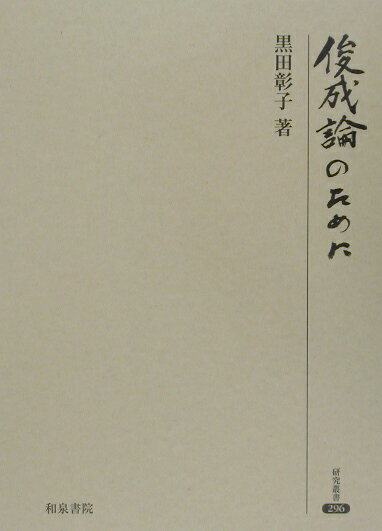 俊成論のために
黒田彰子 著
研究叢書
296
和泉書院